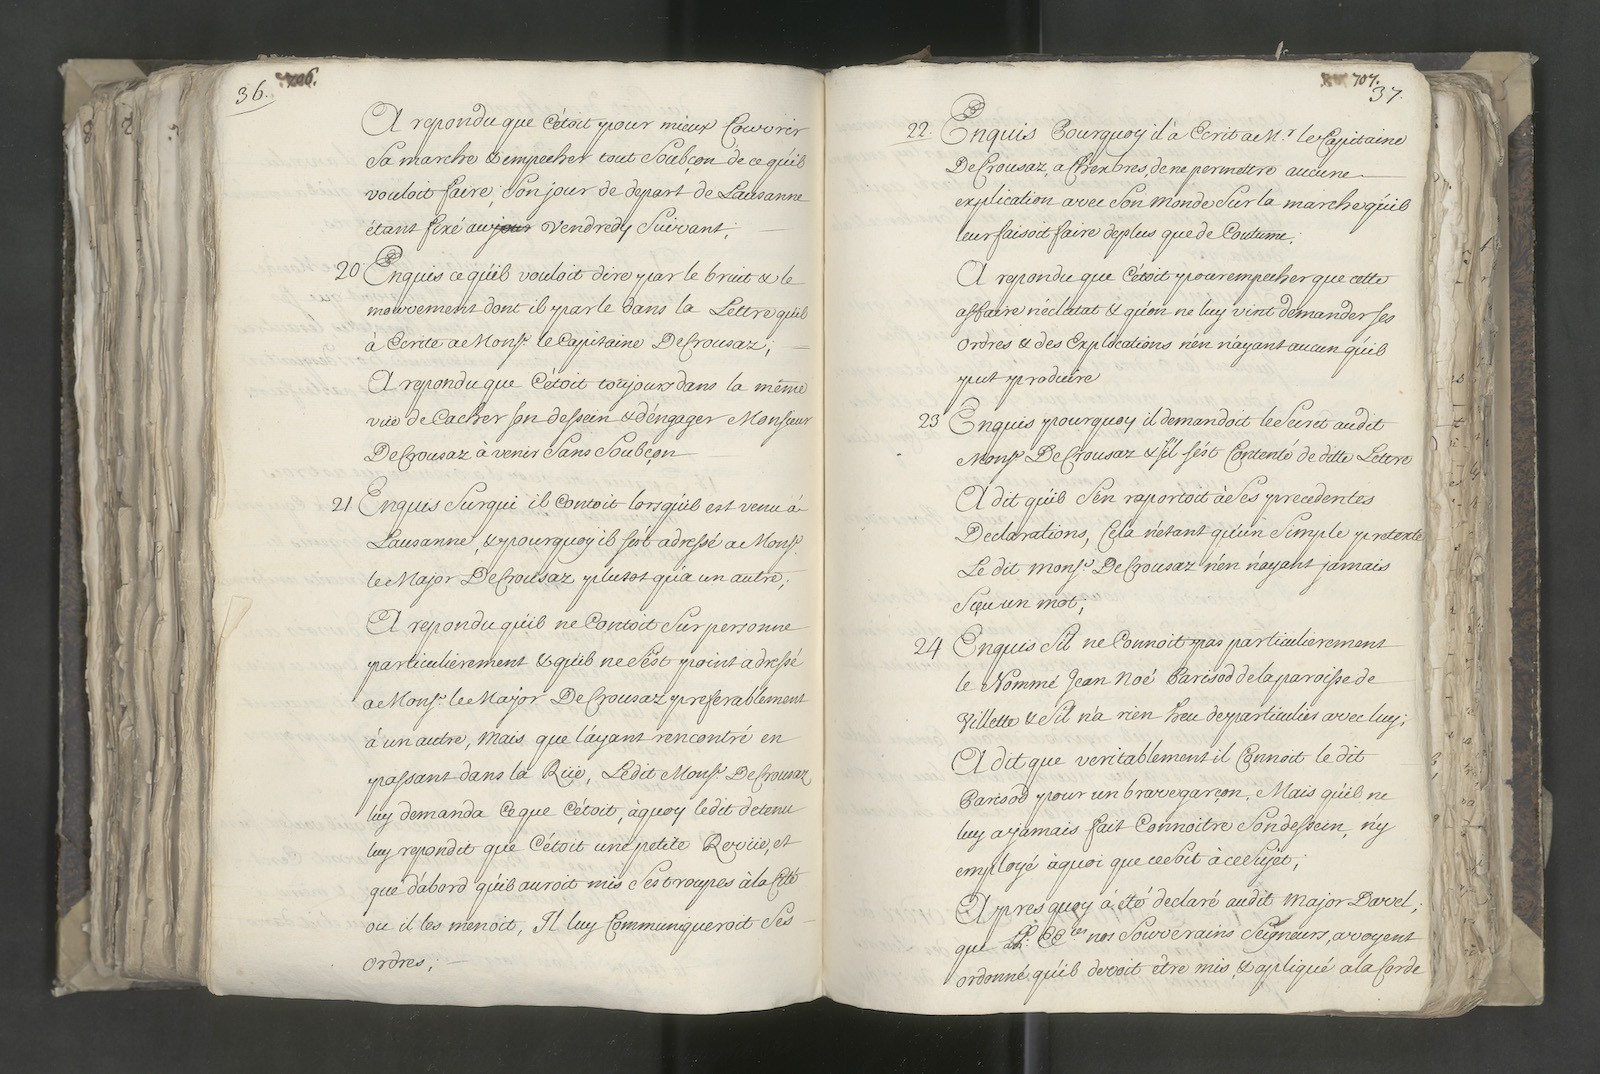 36. 706.
A repondu que C'étoit pour mieux Couvrir
Sa marche & empecher tout Soubçon de ce qu'il
vouloit faire; Son jour de depart de Lausanne
étant fixé au jour Vendredy Suivant;
20 Enquis ce qu'il vouloit dire par le bruit & le
mouvement dont il parle dans la Lettre qu'il
à Ecrite a Monsr. le Capitaine DeCrousaz;
A repondu que C'étoit toujours dans la même
vüe de Cacher son dessein & d'engager Monsieur
DeCrousaz à venir Sans Soubçon
21 Enquis Sur qui il Contoit lorsqu'il est venu à
Lausanne, & pourquoy il s'est adressé a Monsr.
le Major DeCrousaz plutot qu'a un autre;
A repondu qu'il ne Contoit Sur personne
particulierement & qu'il ne S'est point adressé
a Monsr. le Major DeCrousaz preferablement
à un autre, Mais que l'ayant rencontré en
passant dans la Rüe, Ledit Monsr. DeCrousaz
luy demanda Ce que C'étoit, à quoy ledit detenu
luy repondit que C'étoit une petite Revüe, et
que d'abord qu'il auroit mis Ses troupes à la Cité
ou il les menoit, Il luy Communiqueroit Ses
ordres;
707. 37.
22. Enquis Pourquoy il à Ecrit a Mr. le Capitaine
DeCrousaz, a Chexbres, de ne permettre aucune
explication avec Son Monde Sur la marche qu'il
leur faisoit faire de plus que de Coutume;
A repondu que C'étoit pour empecher que cette
affaire n'éclatat & qu'on ne luy vint demander ses
Ordres & des Explications n'en n'ayant aucun qu'il
put produire
23 Enquis pourquoy il demandoit le Secret audit
Monsr. DeCrousaz & s'il s'est Contenté de ditte Lettre
A dit qu'il S'en raportoit à Ses precedentes
Declarations, Cela n'etant qu'un Simple pretexte
Le dit Monsr. DeCrousaz n'en n'ayant jamais
Sçeu un mot;
24 Enquis S'il ne Connoit pas particulierement
le Nommé Jean Noé Parisod de la paroisse de
Villette & S'il n'a rien heu de particulier avec luy;
A dit que veritablement il Connoit le dit
Parisod pour un brave garçon, Mais qu'il ne
luy a jamais fait Connoitre Son dessein, n'y
employé à quoi que ce Soit à ce Sujet;
Apres quoy à été declaré audit Major Davel;
que LL: EE:ces nos Souverains Seigneurs, avoyent
ordonné qu'il devoit être mis, & apliqué a la Corde